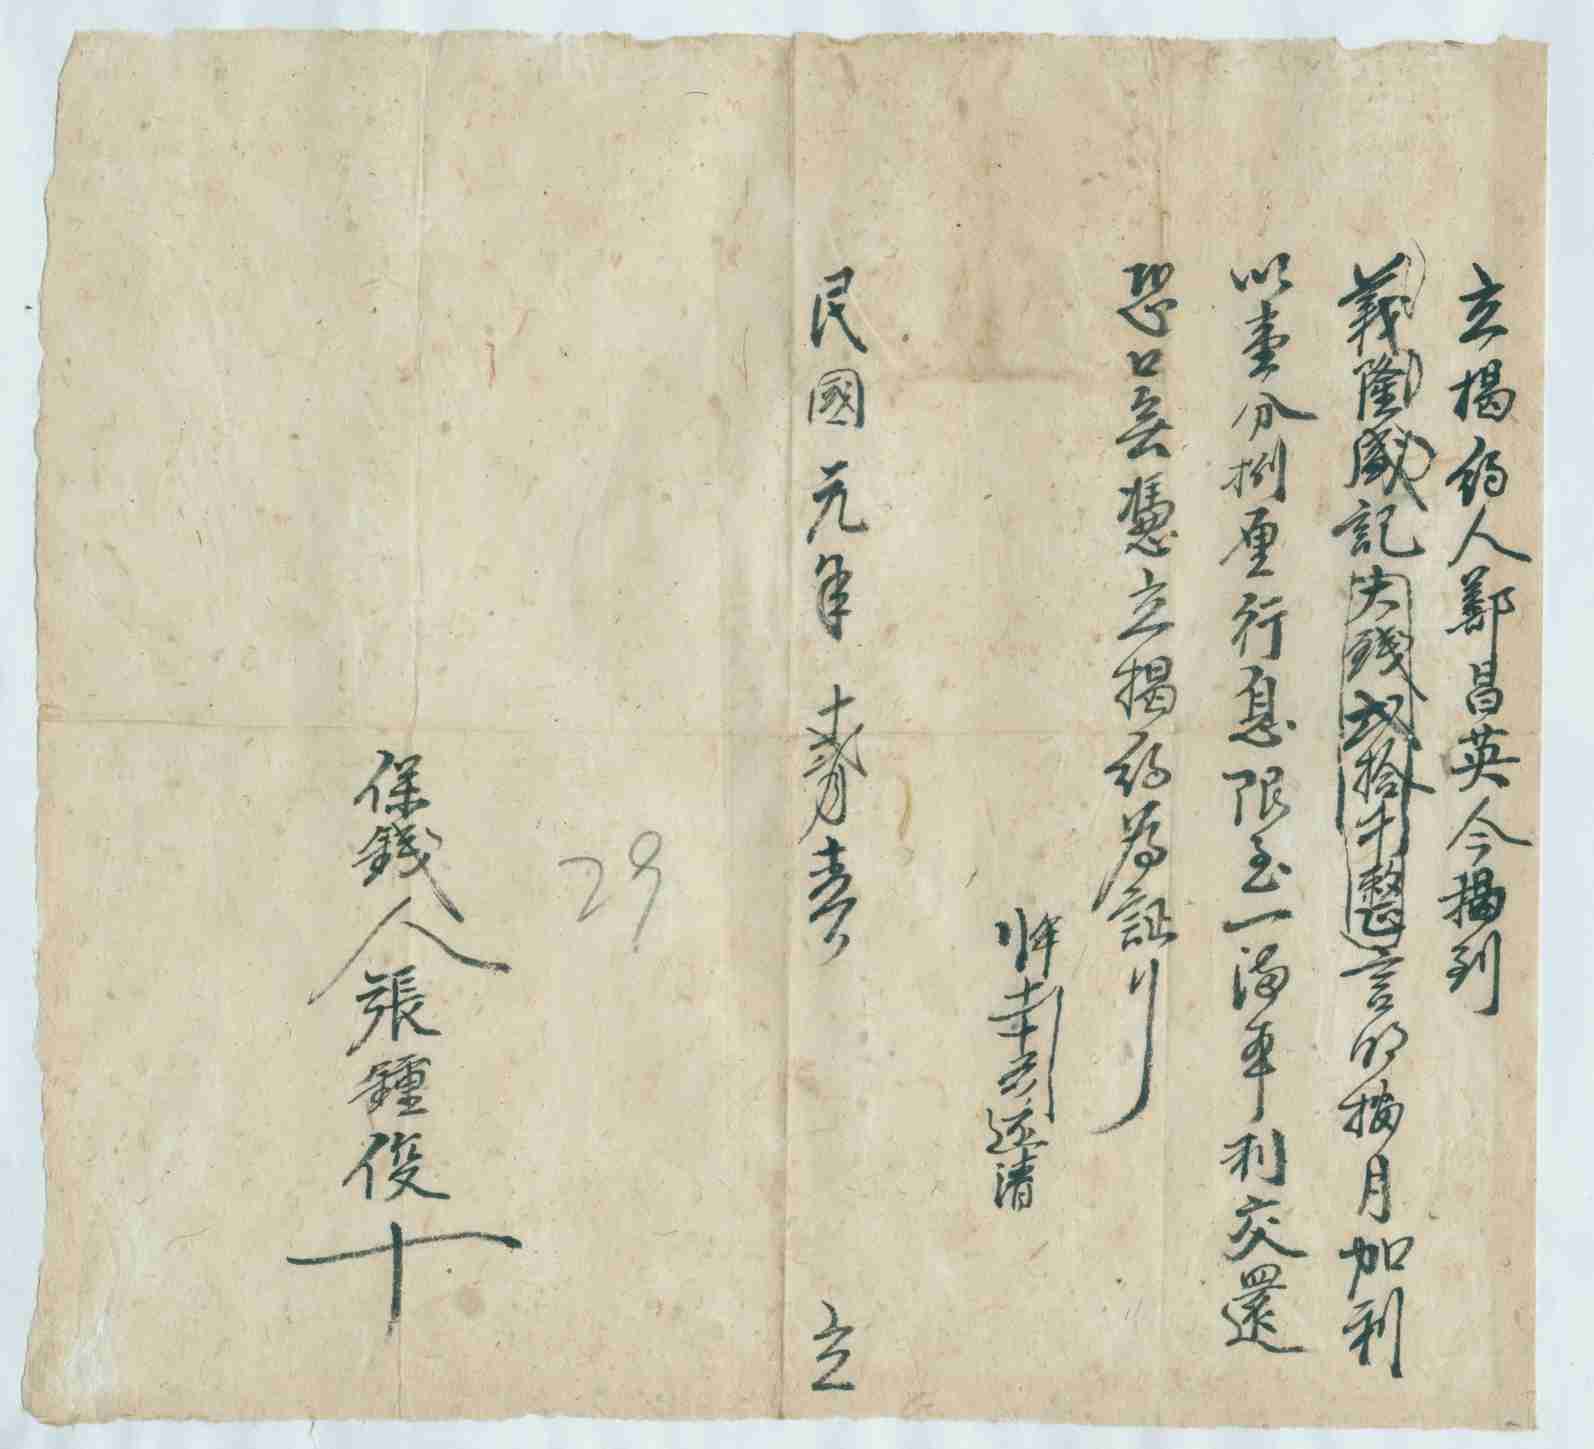 立揭约人鄭昌英今揭到
義隆盛記大錢弍拾千整言明按月加利
以壹分捌厘行息限至一滿年利交還
恐口無憑立揭约為証
年 還清
民國元年十弍月 立
29
保錢人張鍾俊十